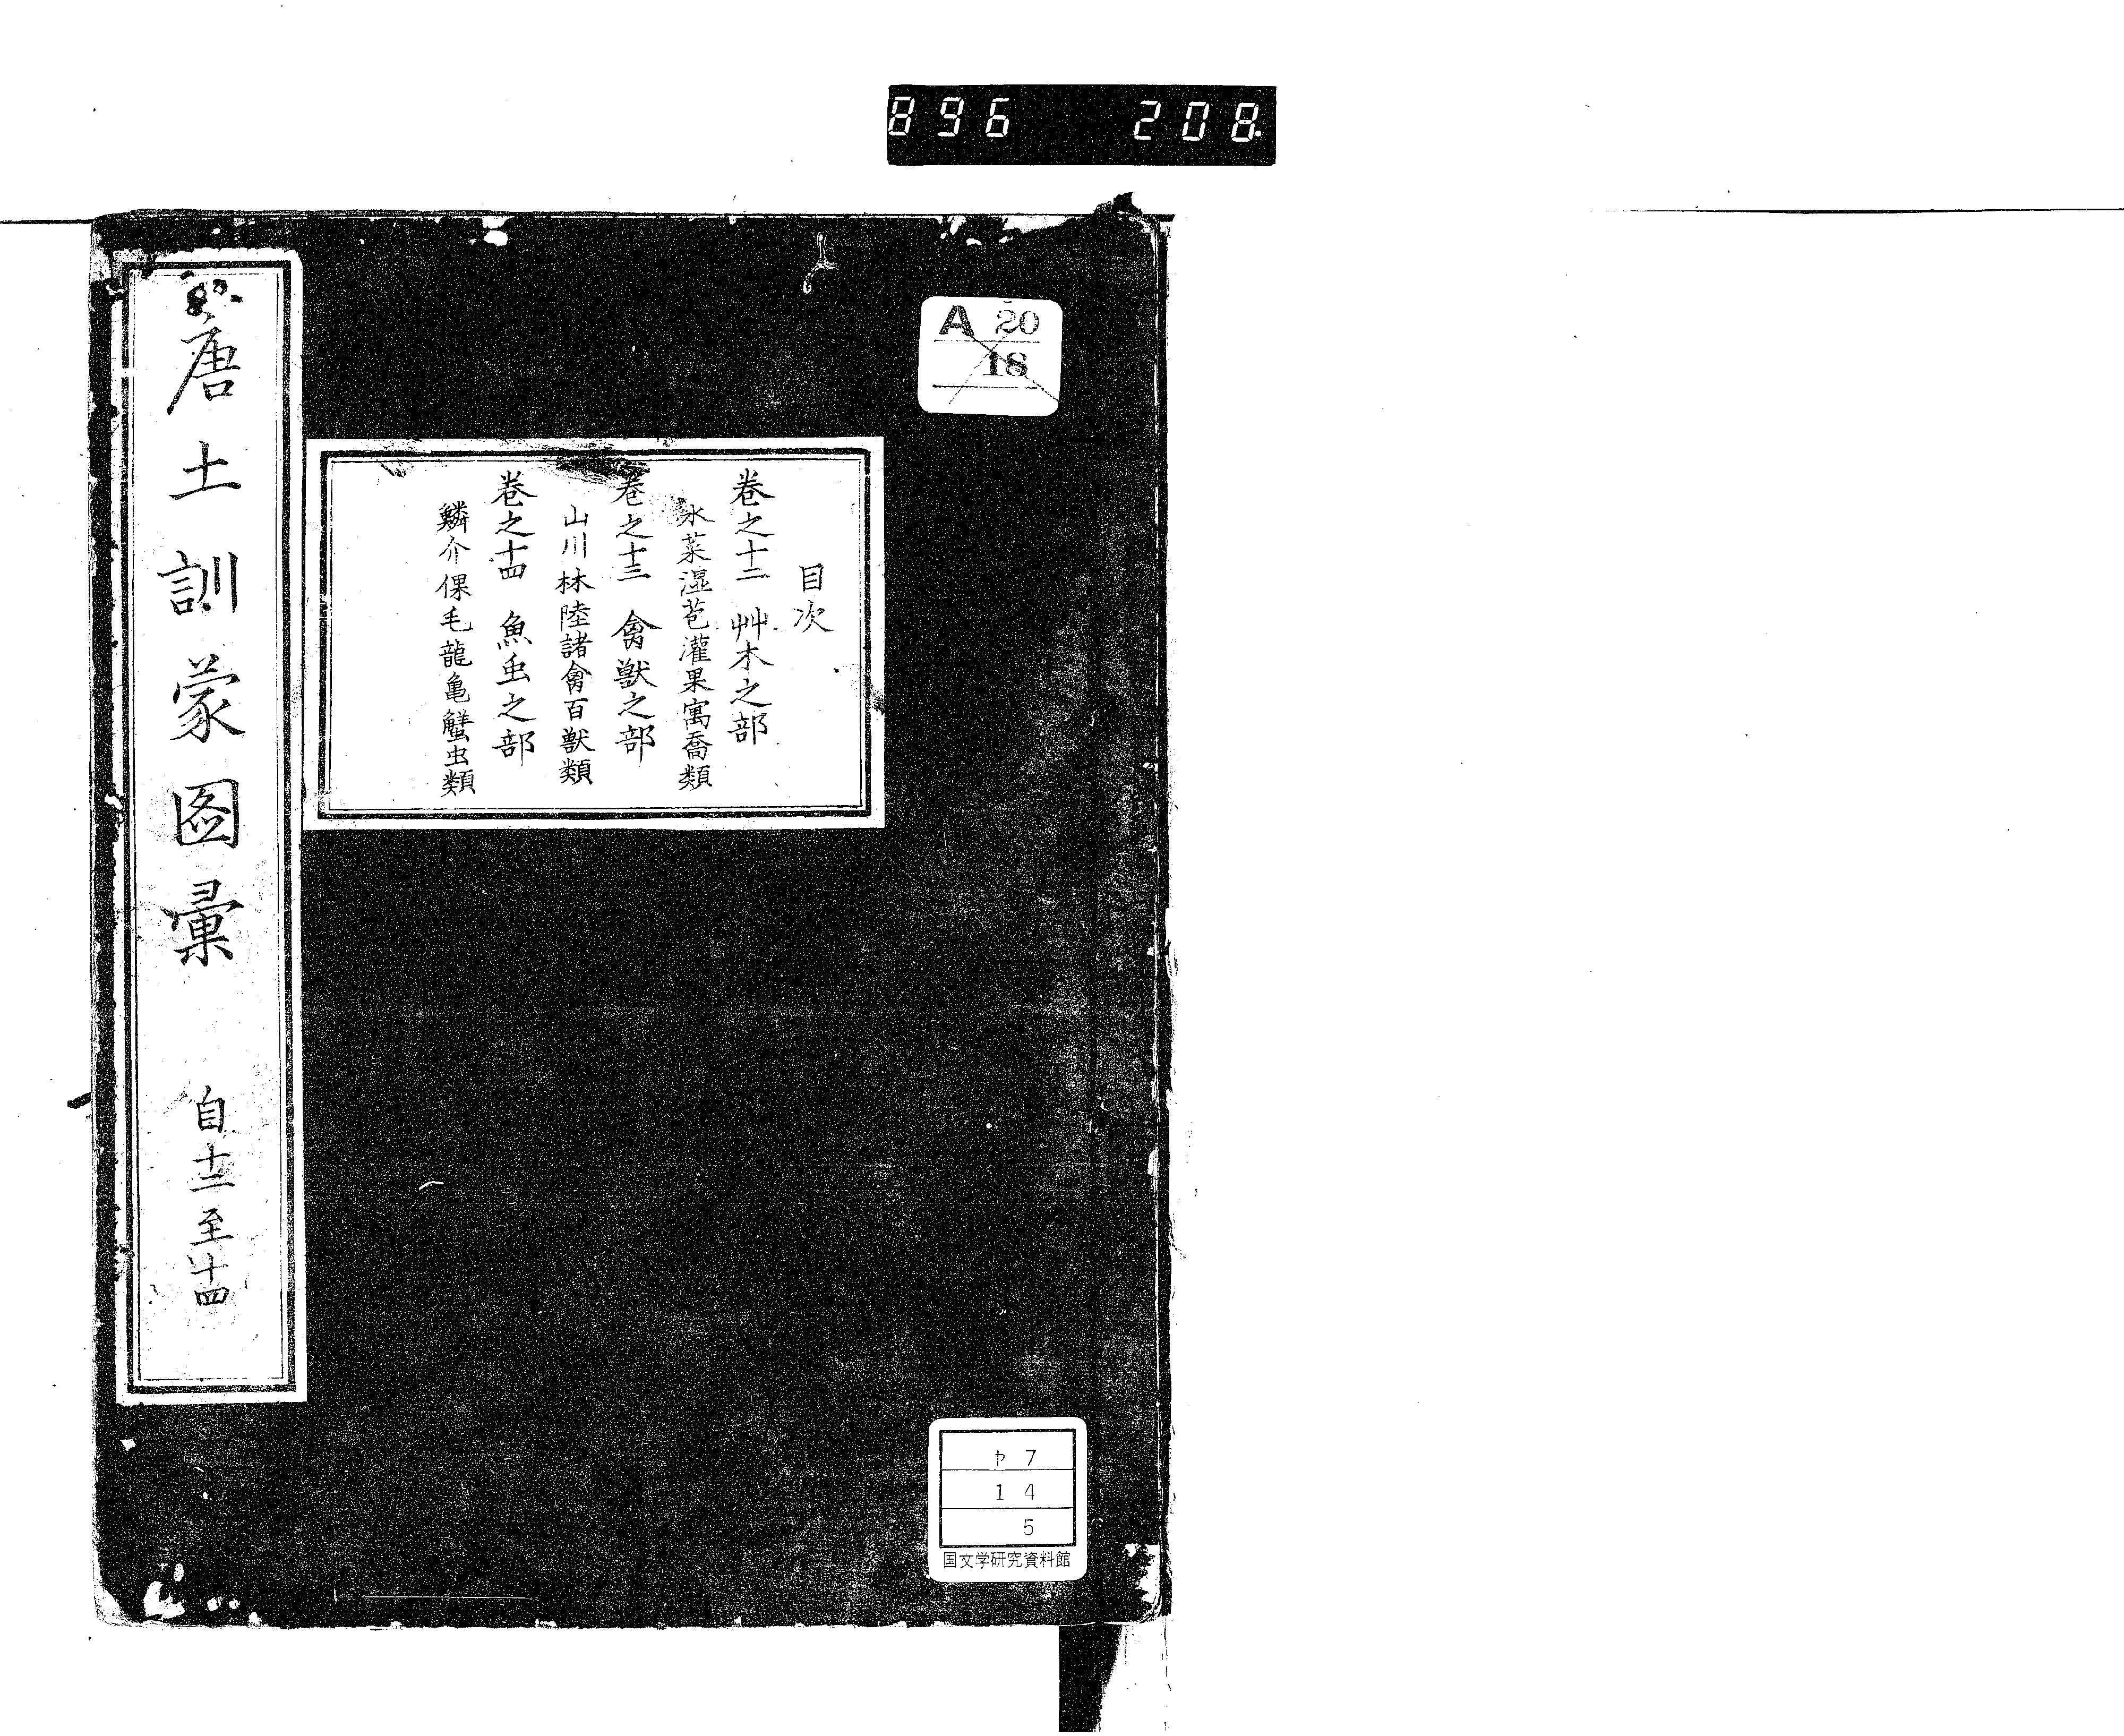 896 208.
A 20
18
目次
巻之十二 艸木之部
水菜湿苞灌果寓喬類
巻之十三 禽獣之部
山川林陸諸禽百獣類
巻之十四 魚虫之部
鱗介倮毛龍亀蟹虫類
唐土訓蒙図彙 自十二至十四
ヤ7
14
5
国文学研究資料館